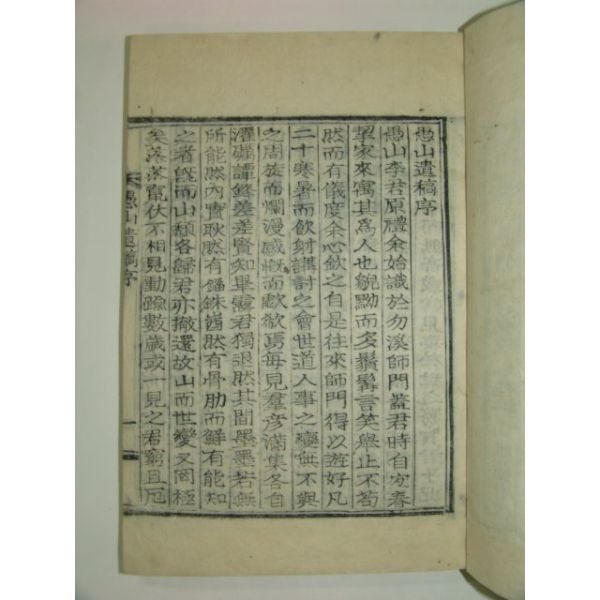 愚山遺稿序
愚山李君原禮余始識於勿溪師門蓋君時自宜春
挈家來寓其爲人也貌黝而多鬚髯言笑舉止不苟
然而有儀度余心欽之自是往來師門得以遊好凡
二十寒暑而飲射講討之會世道人事之變無不與
之周旋而爛漫感慨而歔欷焉每見羣彦滿集各自
濯礪譚鋒差差賢知畢露君獨退然其間墨墨若無
所能然內實耿然有錙銖崭然有骨肋而鮮有能知
之者旣而山頹各歸君亦撤還故山而世變又罔極
矣落落竄伏不相見動踰數歲或一見之君窮且厄
愚山遺稿序
一